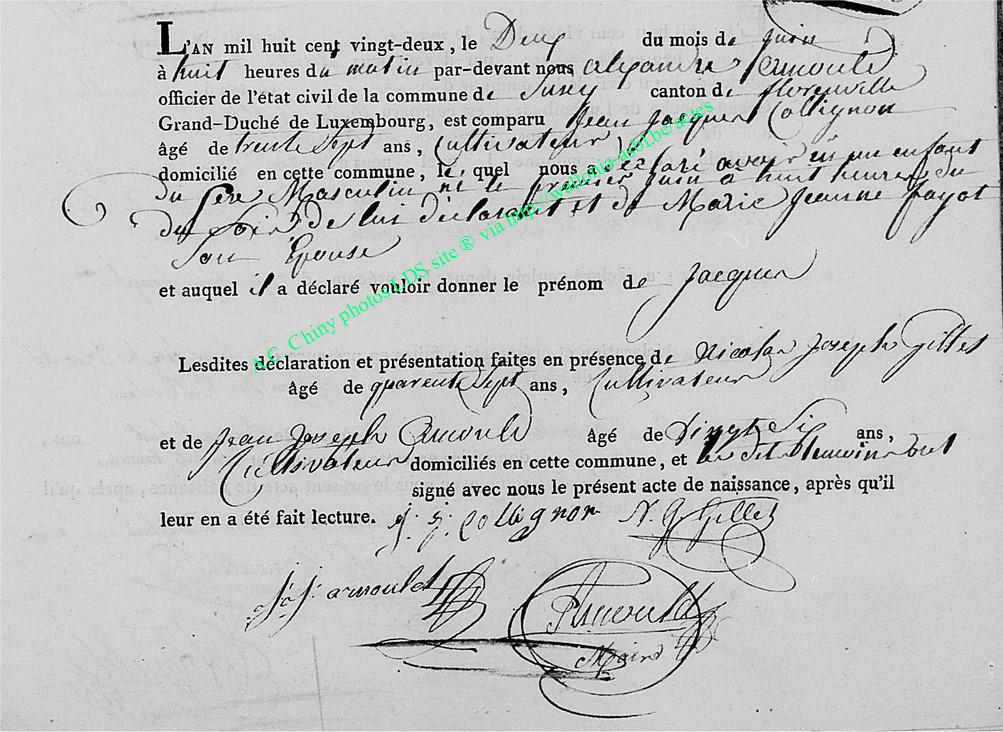 L'AN mil huit cent vingt-deux, le Deux du mois de juin
à huit heures du matin par-devant nous alexandre arnould
officier de l'état civil de la commune de Suxy canton de florenville
Grand-Duché de Luxembourg, est comparu Jean Jacques Collignon
âgé de trente Sept ans, Cultivateur
domicilié en cette commune, le quel nous a déclaré avoir eu un enfant
du Sexe Masculin né le premier juin à huit heures du
du Soir de lui déclarant et de Marie Jeanne fayot
Son Epouse
et auquel il a déclaré vouloir donner le prénom de Jacques
A.C. Chiny photos LDS site ® via http://wallonia-asbl.be/actes
Lesdites déclaration et présentation faites en présence de Nicolas Joseph Gillet
âgé de quarente Sept ans, Cultivateur
et de Jean Joseph Arnould âgé de vingt Six ans,
Cultivateur domiciliés en cette commune, et les dits témoins ont
signé avec nous le présent acte de naissance, après qu'il
leur en a été fait lecture. J: J: Collignon N. J Gillet
J: J: arnould Arnould
Maire